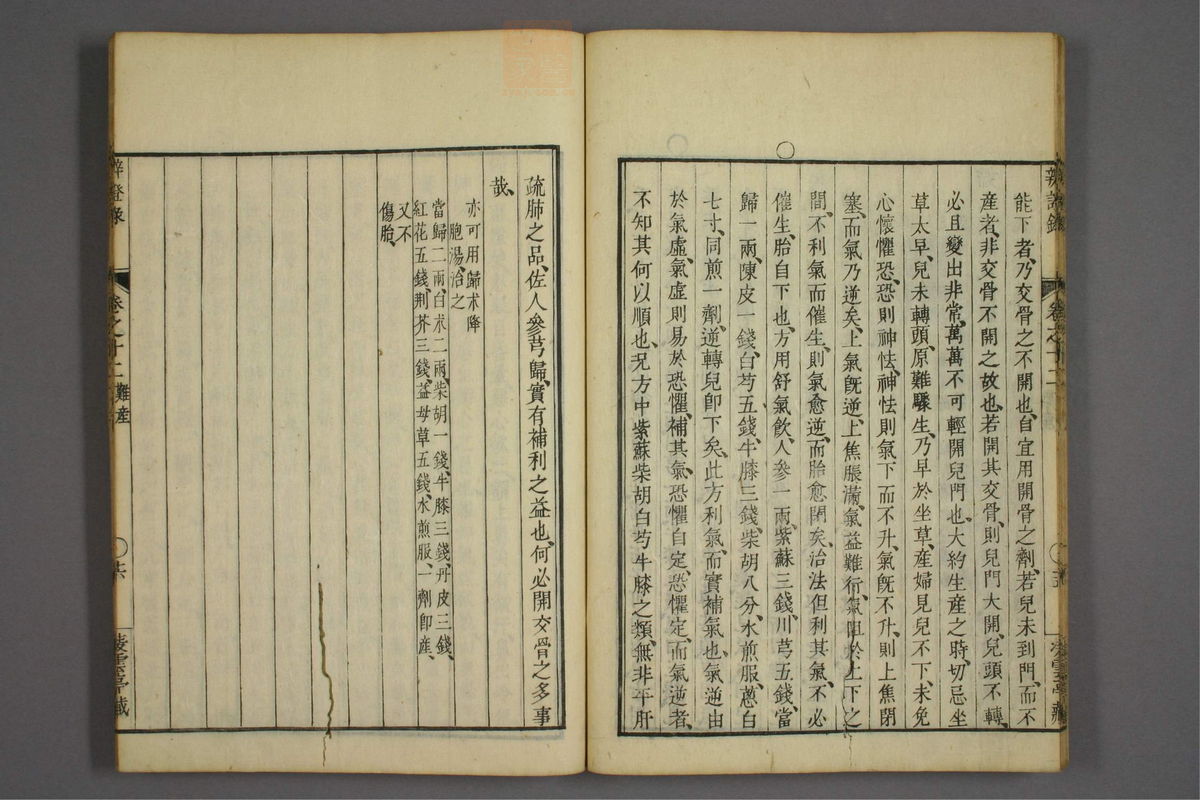 能下者、乃交骨之不開也、自宜用開骨之劑、若兒未到門、而不
產者、非交骨不開之故也、若開其交骨、則兒門大開、兒頭不轉、
必且變出非常、萬萬不可輕開兒門也、大約生產之時、切忌坐
草太早、兒未轉頭、原難驟生、乃早於坐草、產婦見兒不下、未免
心懷懼恐、恐則神怯、神怯則氣下而不升、氣旣不升、則上焦閉
塞、而氣乃逆矣、上氣旣逆、上焦脹滿、氣益難行、氣阻於上下之
間、不利氣而催生、則氣愈逆、而胎愈閉矣、治法但利其氣、不必
催生、胎自下也、方用舒氣飲、人參一兩、紫蘇三錢、川芎五錢、當
歸一兩、陳皮一錢、白芍五錢、牛膝三錢、柴胡八分、水煎服、蔥白
七寸、同煎一劑、逆轉兒卽下矣、此方利氣、而實補氣也、氣逆由
於氣虛、氣虛則易於恐懼、補其氣、恐懼自定、恐懼定、而氣逆者、
不知其何以順也、況方中紫蘇柴胡白芍牛膝之類、無非平肝
疏肺之品、佐人參芎歸、實有補利之益也、何必開交骨之多事
哉、
亦可用歸朮降
胞湯治之
當歸二兩、白朮二兩、柴胡一錢、牛膝三錢、丹皮三錢、
紅花五錢、荆芥三錢、益母草五錢、水煎服、一劑卽產、
又不
傷胎、
辨證錄
卷之十二難產
六
凌雲亭藏